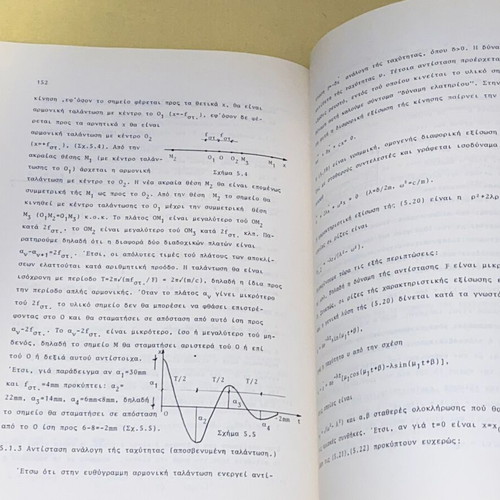 152
κίνηση ,εφ'όσον το σημείο φέρεται προς τα θετικά x, θα είναι
αρμονική ταλάντωση με κέντρο το O₁ (x=-fστ.), εφ'όσον δε φέ-
ρεται προς τα αρνητικά x θα είναι
αρμονική ταλάντωση με κέντρο O₂
(x=+fστ.), (Σχ.5.4). Από την
ακραία θέσης M₁ (με κέντρο ταλάν-
τωσης το O₁) άρχεται η αρμονική
fστ. fστ.
M₂ O₁ O O₂ M₃ M₁ x
Σχήμα 5.4
ταλάντωση με κέντρο το O₂. Η νέα ακραία θέση M₂ θα είναι επομένως
συμμετρική της M₁ ως προς το O₂. Από την θέση M₂ το σημείο θα
κινηθεί με κέντρο ταλάντωσης το O₁ μέχρι την συμμετρική θέση
M₃ (O₁M₂=O₁M₃) κ.ο.κ. Το πλάτος OM₁ είναι μεγαλύτερο του OM₂
κατά 2fστ., το OM₂ είναι μεγαλύτερο του OM₃ κατά 2fστ. κλπ. Πα-
ρατηρούμε δηλαδή ότι η διαφορά δύο διαδοχικών πλατών είναι
αᵥ-αᵥ₊₁=2fστ. Έτσι, οι απόλυτες τιμές του πλάτους των αποκλί-
σεων ελαττούται κατά αριθμητική πρόοδο. Η ταλάντωση θα είναι
ισόχρονη με περίοδο T=2π√(mfστ./F) = 2π√(m/c), δηλαδή η ίδια προς
την περίοδο απλής αρμονικής. Όταν το πλάτος αᵥ γίνει μικρότερο
του 2fστ., το υλικό σημείο δεν θα μπορέσει να φθάσει επιστρέ-
φοντας στο O και θα σταματήσει σε απόσταση από αυτό ίση προς
αᵥ-2fστ. Το αᵥ-2fστ. είναι μικρότερο, ίσο ή μεγαλύτερο του μη-
δενός, δηλαδή το σημείο M θα σταματήσει αριστερά του O ή επί
του O ή δεξιά αυτού αντίστοιχα.
Έτσι, γιά παράδειγμα αν α₁=30mm
και fστ.=4mm προκύπτει: α₂=
22mm, α₃=14mm, α₄=6mm<8mm, δηλαδή
το σημείο θα σταματήσει σε απόσταση
από το O ίση προς 6-8=-2mm (Σχ.5.5).
x
T/2 T/2 T/2
α₁ α₂ α₃ α₄
2mm t
Σχήμα 5.5
5.1.3 Αντίσταση ανάλογη της ταχύτητας (αποσβενυμένη ταλάντωση.)
Έτσω ότι στην ευθύγραμμη αρμονική ταλάντωση ενεργεί αντί-
ανάλογη της ταχύτητας, όπου b>0. Η δύναμ
της ταχύτητας υ. Τέτοια αντίσταση προέρχεται
εντός του οποίου κινείται το υλικό ση
καλούμε σύντομα "δύναμη ελατηρίου". Στην
η διαφορική εξίσωση της κίνησης παίρνει την
+ bx + cx=0.
είναι γραμμική, ομογενής διαφορική εξίσωση
σταθερούς συντελεστές και γράφεται ισοδύναμα
+ ω²x = 0 (λ=b/2m, ω²=c/m).
χαρακτηριστική εξίσωση της (5.20) είναι η p²+2λp
ρίζες είναι
τώρα τις εξής περιπτώσεις:
δηλαδή η δύναμη της αντίστασης F είναι μικρ
οι ρίζες της χαρακτηριστικής εξίσωσης ε
γενική λύση της (5.20) δίνεται κατά τα γνωστ
ταχύτητα υ από την σχέση
[μ₁cos(μ₁t+β)-λsin(μ₁t+β)],
και α,β σταθερές ολοκλήρωσης πού θα
συνθήκες. Έτσι, αν γιά t=0 είναι x=x₀
τις (5.21),(5.22) προκύπτουν ευχερώς: